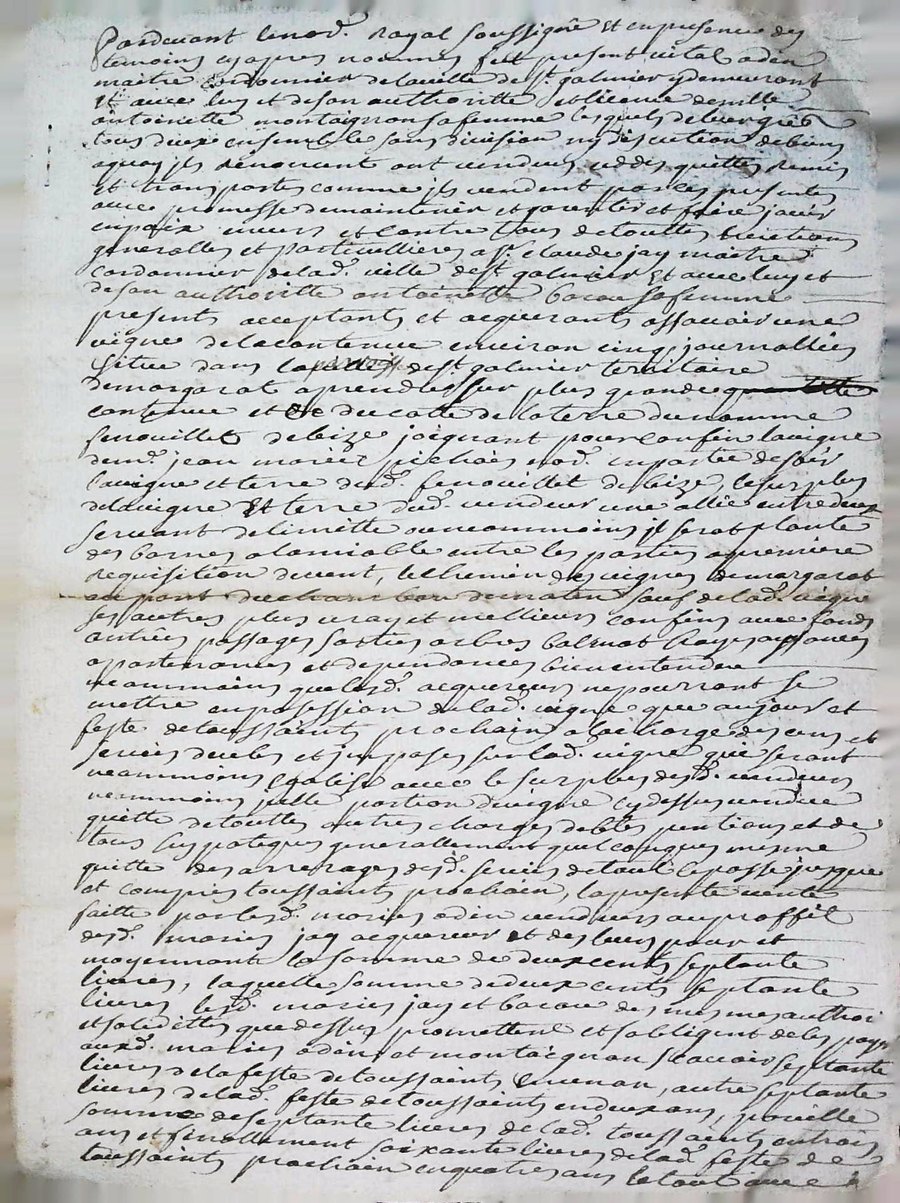 Pardevant le nore. Royal soussigné Et en presence des
temoins cy apres nommes fut present vital odin
maitre cordonnier de la ville de st. galmier y demeurant
et avec luy et de son authoritté et licence demlle
antoinette montaignon sa femme lesquels de leur grés
tous deux ensemble sans division ny discution de biens
a quoy ils renoncent ont vendus cedes quittes remis
et transportes comme ils vendent par ces presentes
avec promesse de maintenir et garentir et faire jouir
en paix envers et contre tous de touttes evictions
generalles et particullieres a sr. claude jay maitre
cordonnier de lad. ville de st galmier Et avec luy et
de son authoritté antoinette bacou sa femme
presents acceptants et acquerants assavoir une
vigne de la contenue environ cinq journallées
situe dans la parroisse de st galmier territoire
de margarat a prendre sur plus grande
contenue et du cotte de la terre du nomme
fenouillet de bize joignant pour confin la vigne
de mr. jean marie nore. en partie de soir
la vigne et terre dud. fenouillet de bize, le surplus
de la vigne Et terre dud. vendeur une allée entre deux
servant de limitte ou neammoins il serat planté
des bornes a l'amiable entre les parties a premiere
requisition de vent, le chemin des vignes de margarat
au pont du de matin sauf de lad. vigne
ses autres plus vray et meilleurs confins avec fonds
entrées passages sorties arbres aysances
apartenances et dependances bien entendu
neammoins que lesd. acquereurs ne pourront se
mettre en possession de lad. vigne que au jour et
feste de toussaints prochain a la charge des cens et
servis deubs et imposes sur lad. vigne qui seront
neammoins egalisé avec le surplus desd. vendeurs
neammoins jcelle portion de vigne cy dessus vendue
quitte de touttes autres charges debtes pentions et de
tous hypoteques generallement quelconques mesme
quitte des arrerages desd. servis de tout le passé jusque
et compris toussaints prochain, la presente vente
faitte par lesd. maries odin vendeurs au proffit
desd. maries jay acquereur et des leurs pour et
moyennant la somme de deux cents septante
livres, laquelle somme de deux cents septante
livres lesd. maries jay et bacou des mesmes authori
et sollidittes que dessus promettent et s'obligent de les payer
auxd. maries odin et montaignon scavoir septante
livres de la feste de toussaints en un an, autre septante
livres de lad. feste de toussaints en deux ans, pareille
somme de septante livres de lad. toussaints en trois
ans et finallement soixante livres de lad. feste de
toussaints prochain en quatre ans le tout avec